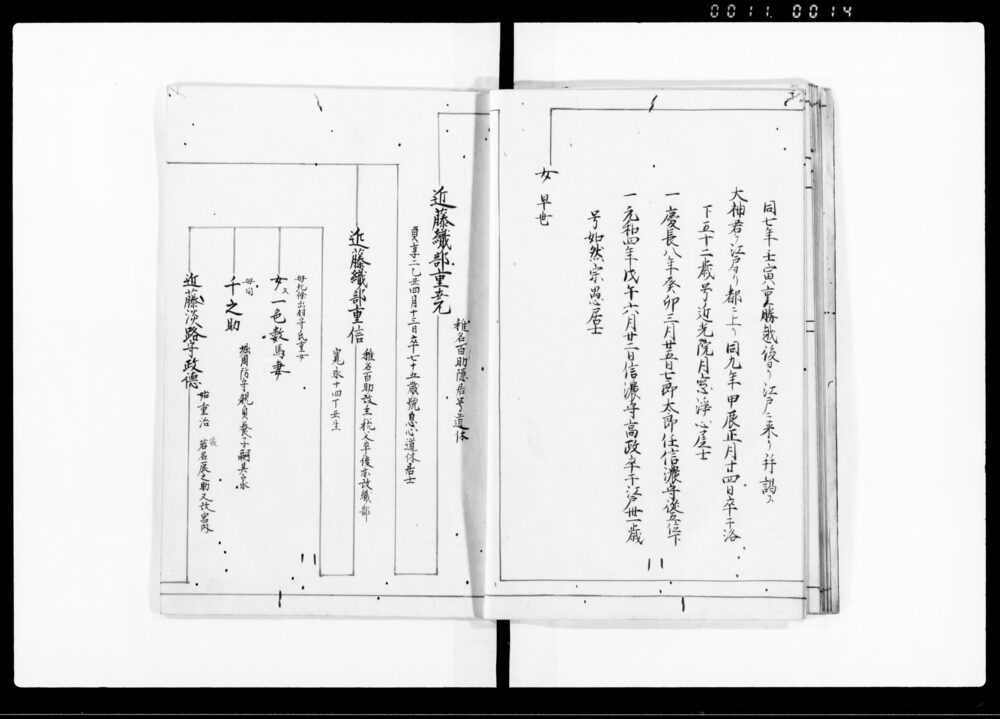 0011 0014
同七年壬寅重勝越後ヨリ江戸ニ来リ并謁ス
大神君ヲ江戸ヨリ都ニ上リ同九年甲辰正月十四日卒于洛
下五十二歳号近光院月窓浄心居士
一慶長八年癸卯三月廿五日七郎太郎任信濃守従五位下
一元和四年戊午六月廿二日信濃守高政卒于江戸卅一歳
号如然宗愚居士
女 早世
稚名百助隠居号道休
近藤織部重尭
貞享二乙丑四月十三日卒七十五歳號息心道休居士
稚名百助改主税父卒後亦改織部
近藤織部重信
寛永十四丁丑生
母北條出羽守氏重女
女 一色数馬妻
母同
千之助
堀周防守親貞養子嗣其家
近藤淡路守政徳
始重治 若名辰之助又改宮内